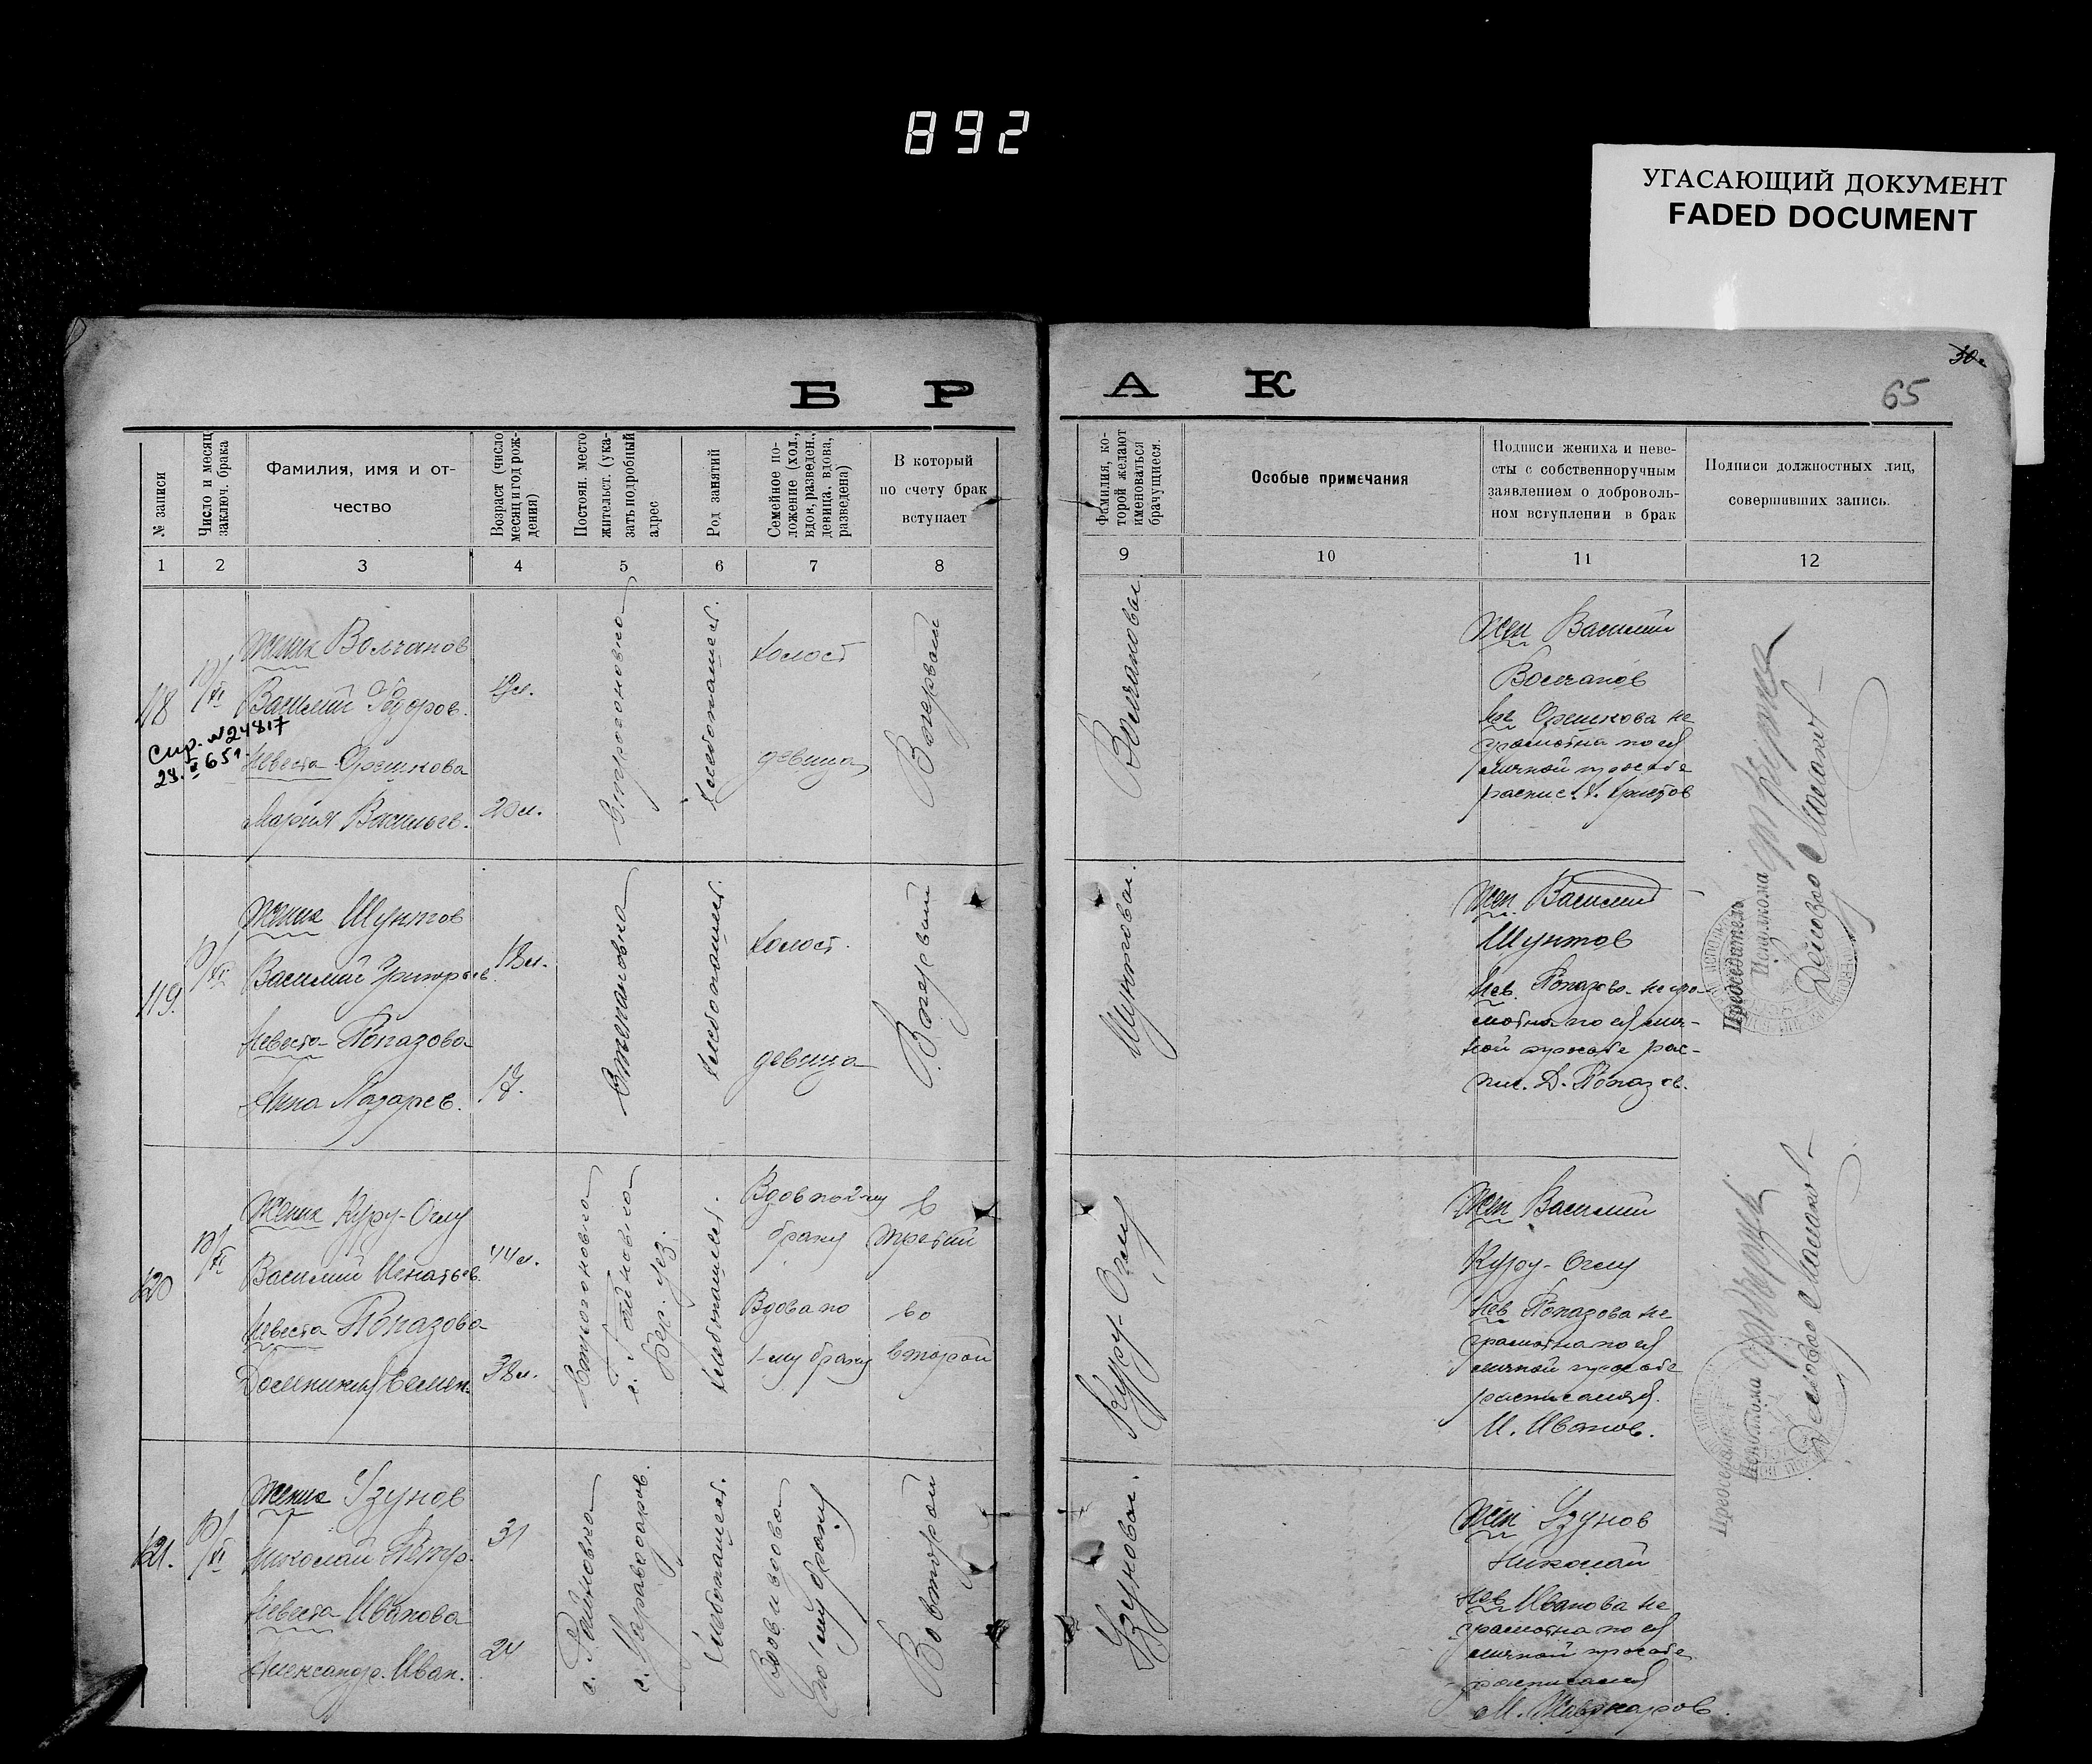 892
УГАСАЮЩИЙ ДОКУМЕНТ
FADED DOCUMENT
30
65
Б Р А К
№ записи
Число и месяц
заключ. брака
Фамилия, имя и от-
чество
Возраст (число
месяц и год рож-
дения)
Постоян. место
жительст. (ука-
зать подробный
адрес
Род занятий
Семейное по-
ложение (хол.,
вдов, разведен.,
девица, вдова,
разведена)
В который
по счету брак
вступает
Фамилия, ко-
торой желают
именоваться
брачущиеся.
Особые примечания
Подписи жениха и неве-
сты с собственноручным
заявлением о доброволь-
ном вступлении в брак
Подписи должностных лиц,
совершивших запись.
1 2 3 4 5 6 7 8 9 10 11 12
118
10/XI
Жених Волчанов
Василий Федоров.
Спр. №24817
Невеста Орешкова
Мария Васильев.
19 л.
20 л.
Строгоновка
Хлебопашест.
холост
девица
В первый
Волчановы
Жен Василий
Волчанов
Нев Орешкова не
грамотна по ея
личной просьбе
распис. Х. Христов
119.
10/XI
Жених Шунтов
Василий Григорьев.
Невеста Попазова
Анна Лазарев.
18 л.
17.
Степановка
Хлебопашест.
Холост.
девица
В первый
Шунтовы.
Жен. Василий
Шунтов
Нев. Попазова негра-
мотна по ея лич-
ной просьбе рас-
пис. Д. Попазов.
Председатель
Исполкома
Деловод
120
10/XI
Жених Куру-Оглу
Василий Игнатьев.
Невеста Попазова
Домникия Семен.
44 л.
38 л.
Строгоновка
с. Райновка
Бер. уез.
Хлебопашест.
Вдов по 2-му
браку
Вдова по
1-му браку
в
третий
во
второй
Куру-Оглу
Жен Василий
Куру-Оглу
Нев Попазова не
грамотна по ея
личной просьбе
расписался
И. Иванов.
Председатель
Исполкома
Деловод
121.
10/XI
Жених Узунов
Николай Петр.
Невеста Иванова
Александр. Иван.
31
24
с. Райновка
Хлебопашест.
Вдов и вдова
по 1 му браку
Во второй
Узуновы.
Жен Узунов
Николай
Нев Иванова не
грамотна по ея
личной просьбе
расписался